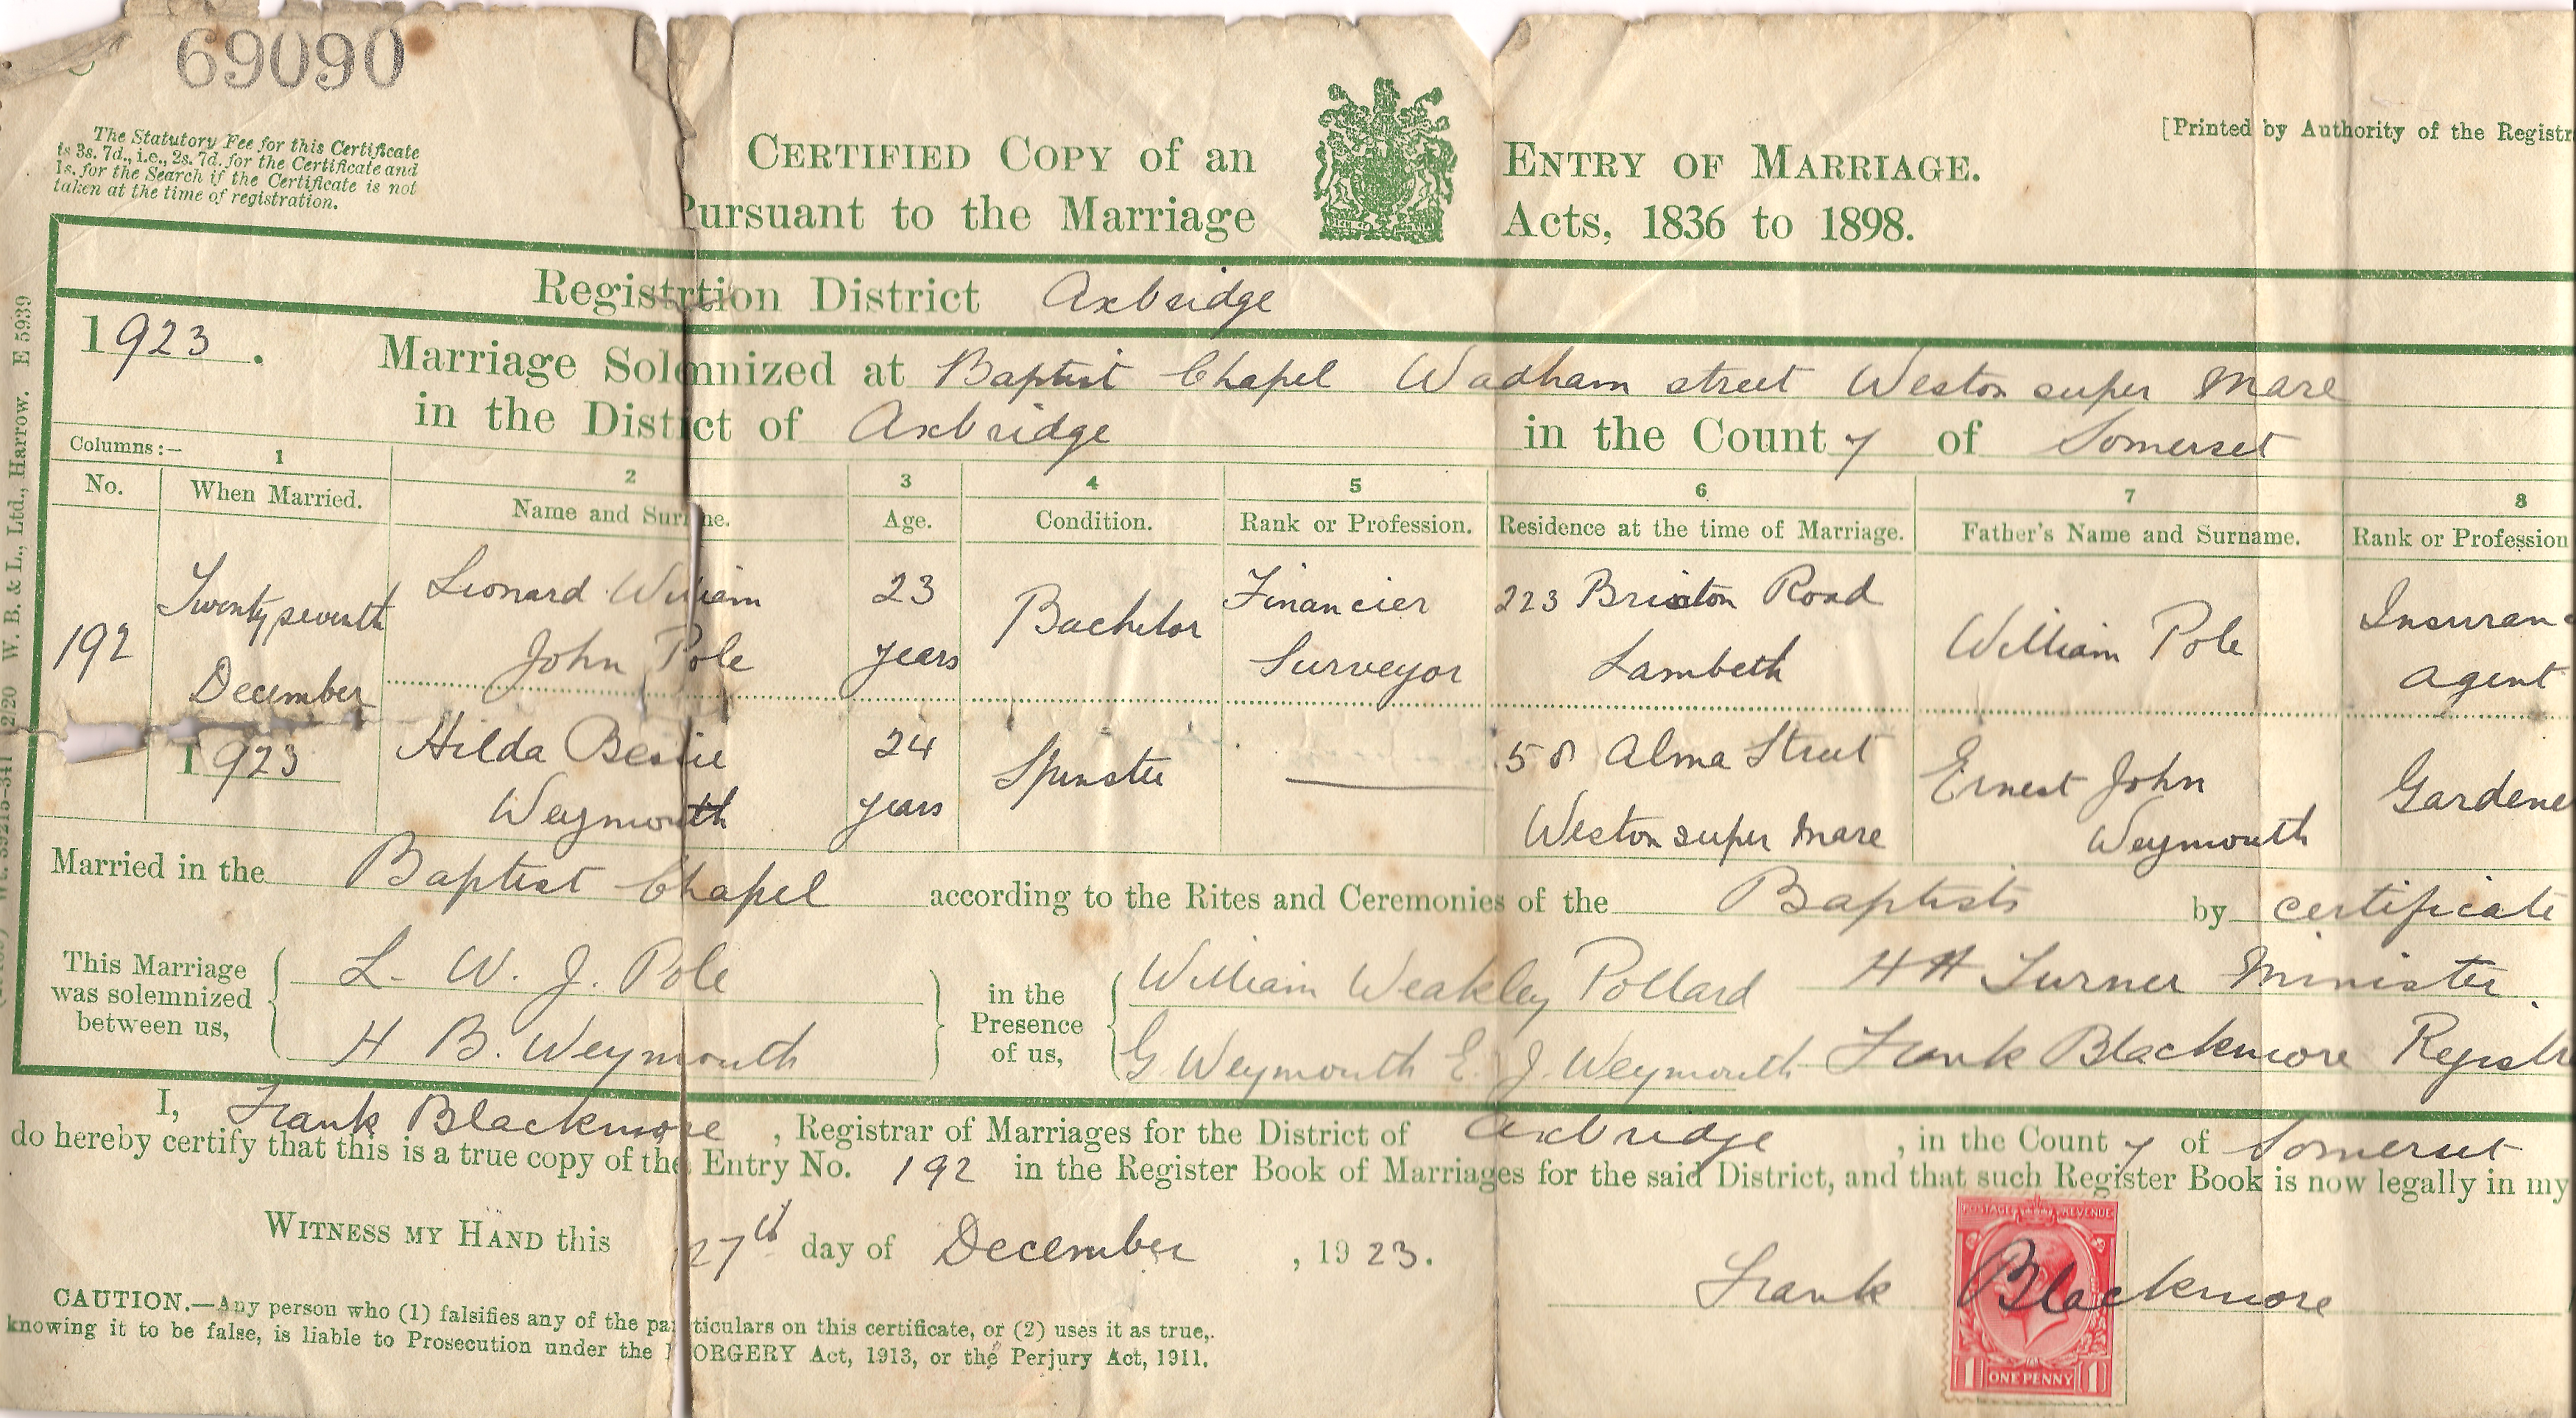 69090
The Statutory Fee for this Certificate
is 3s. 7d., i.e., 2s. 7d. for the Certificate and
1s. for the Search if the Certificate is not
taken at the time of registration.
CERTIFIED COPY of an ENTRY OF MARRIAGE.
Pursuant to the Marriage Acts, 1836 to 1898.
[Printed by Authority of the Registr
W. B. & L., Ltd., Harrow. E 5939
Registrtion District Axbridge
1923. Marriage Solemnized at Baptist Chapel Wadham street Weston super Mare
in the District of Axbridge in the County of Somerset
Columns:— 1 2 3 4 5 6 7 8
No. When Married. Name and Surne. Age. Condition. Rank or Profession. Residence at the time of Marriage. Father's Name and Surname. Rank or Profession
192
Twenty seventh
December
1923
Leonard William
John Pole
23
years
Bachelor
Financier
Surveyor
223 Brixton Road
Lambeth
William Pole
Insuranc
agent
Hilda Bessie
Weymouth
24
years
Spinster
58 Alma Street
Weston super Mare
Ernest John
Weymouth
Gardene
Married in the Baptist Chapel according to the Rites and Ceremonies of the Baptists by certificate
This Marriage
was solemnized
between us,
L. W. J. Pole
H B. Weymouth
in the
Presence
of us,
William Weakley Pollard
G Weymouth E. J. Weymouth
H H Turner Minister.
Frank Blackmore Registr
I, Frank Blackmore, Registrar of Marriages for the District of Axbridge, in the County of Somerset
do hereby certify that this is a true copy of the Entry No. 192 in the Register Book of Marriages for the said District, and that such Register Book is now legally in my
WITNESS MY HAND this 27th day of December, 1923.
Frank Blackmore
POSTAGE REVENUE
1 ONE PENNY 1
CAUTION.—Any person who (1) falsifies any of the particulars on this certificate, or (2) uses it as true,
knowing it to be false, is liable to Prosecution under the FORGERY Act, 1913, or the Perjury Act, 1911.